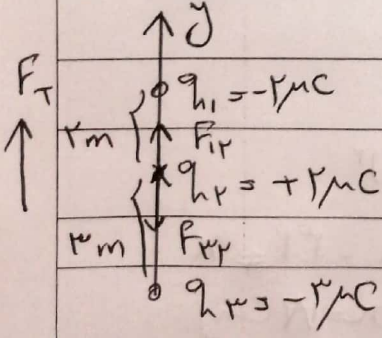 y
F_T
q_۱ = -۲μC
۲m
F_۱۲
q_۲ = +۲μC
۳m
F_۳۲
q_۳ = -۳μC